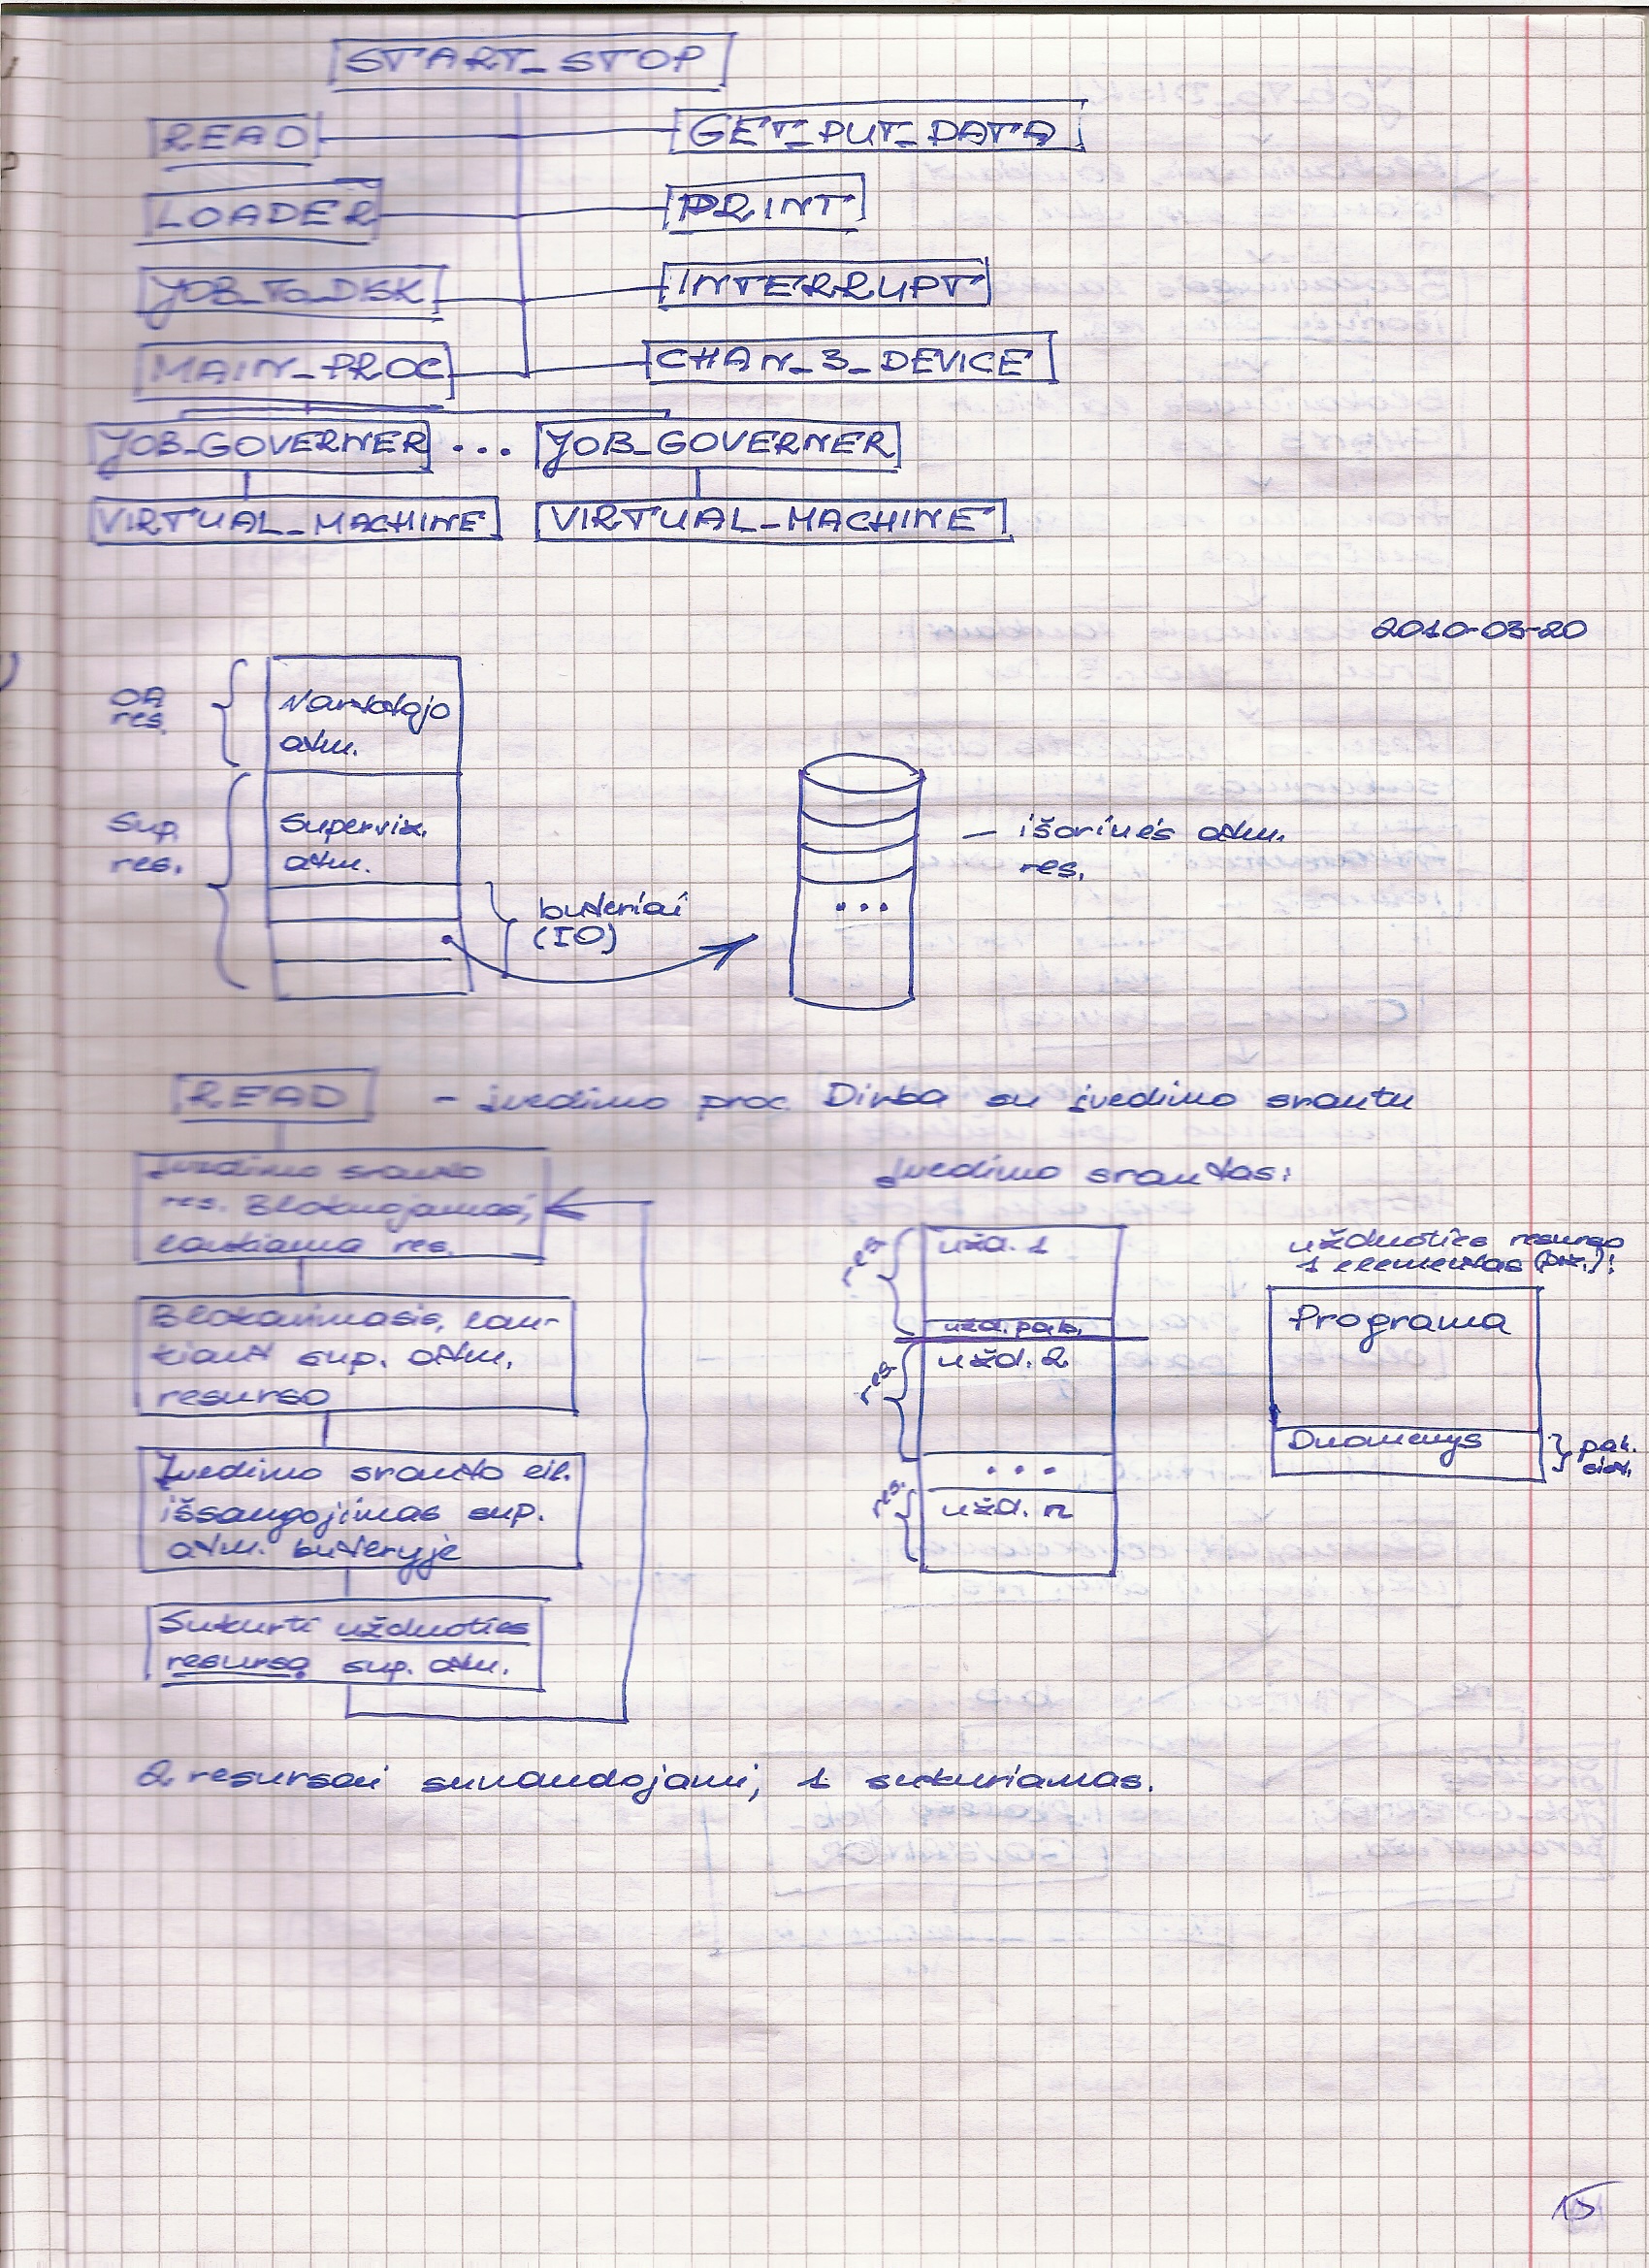 START_STOP
READ
GET_PUT_DATA
LOADER
PRINT
JOB_TO_DISK
INTERRUPT
MAIN_PROC
CHAN_3_DEVICE
JOB_GOVERNER ... JOB_GOVERNER
VIRTUAL_MACHINE
VIRTUAL_MACHINE
2010-03-20
OA
res.
Vartotojo
atm.
Sup.
res.
Superviz.
atm.
buferiai
(IO)
...
— išorinės atm.
res.
READ
- įvedimo proc. Dirba su įvedimo srautu
Įvedimo srauto
res. Blokuojamasi,
laukiama res.
Blokavimasis, lau-
kiant sup. atm.
resurso
Įvedimo srauto eil.
išsaugojimas sup.
atm. buferyje
Sukurti užduoties
resursą sup. atm.
Įvedimo srautas:
res.
užd. 1
užd. pab.
res.
užd. 2
...
res.
užd. n
užduoties resurso
1 elementas (pvz.):
Programa
Duomenys
pak.
2 resursai sunaudojami, 1 sukuriamas.
15